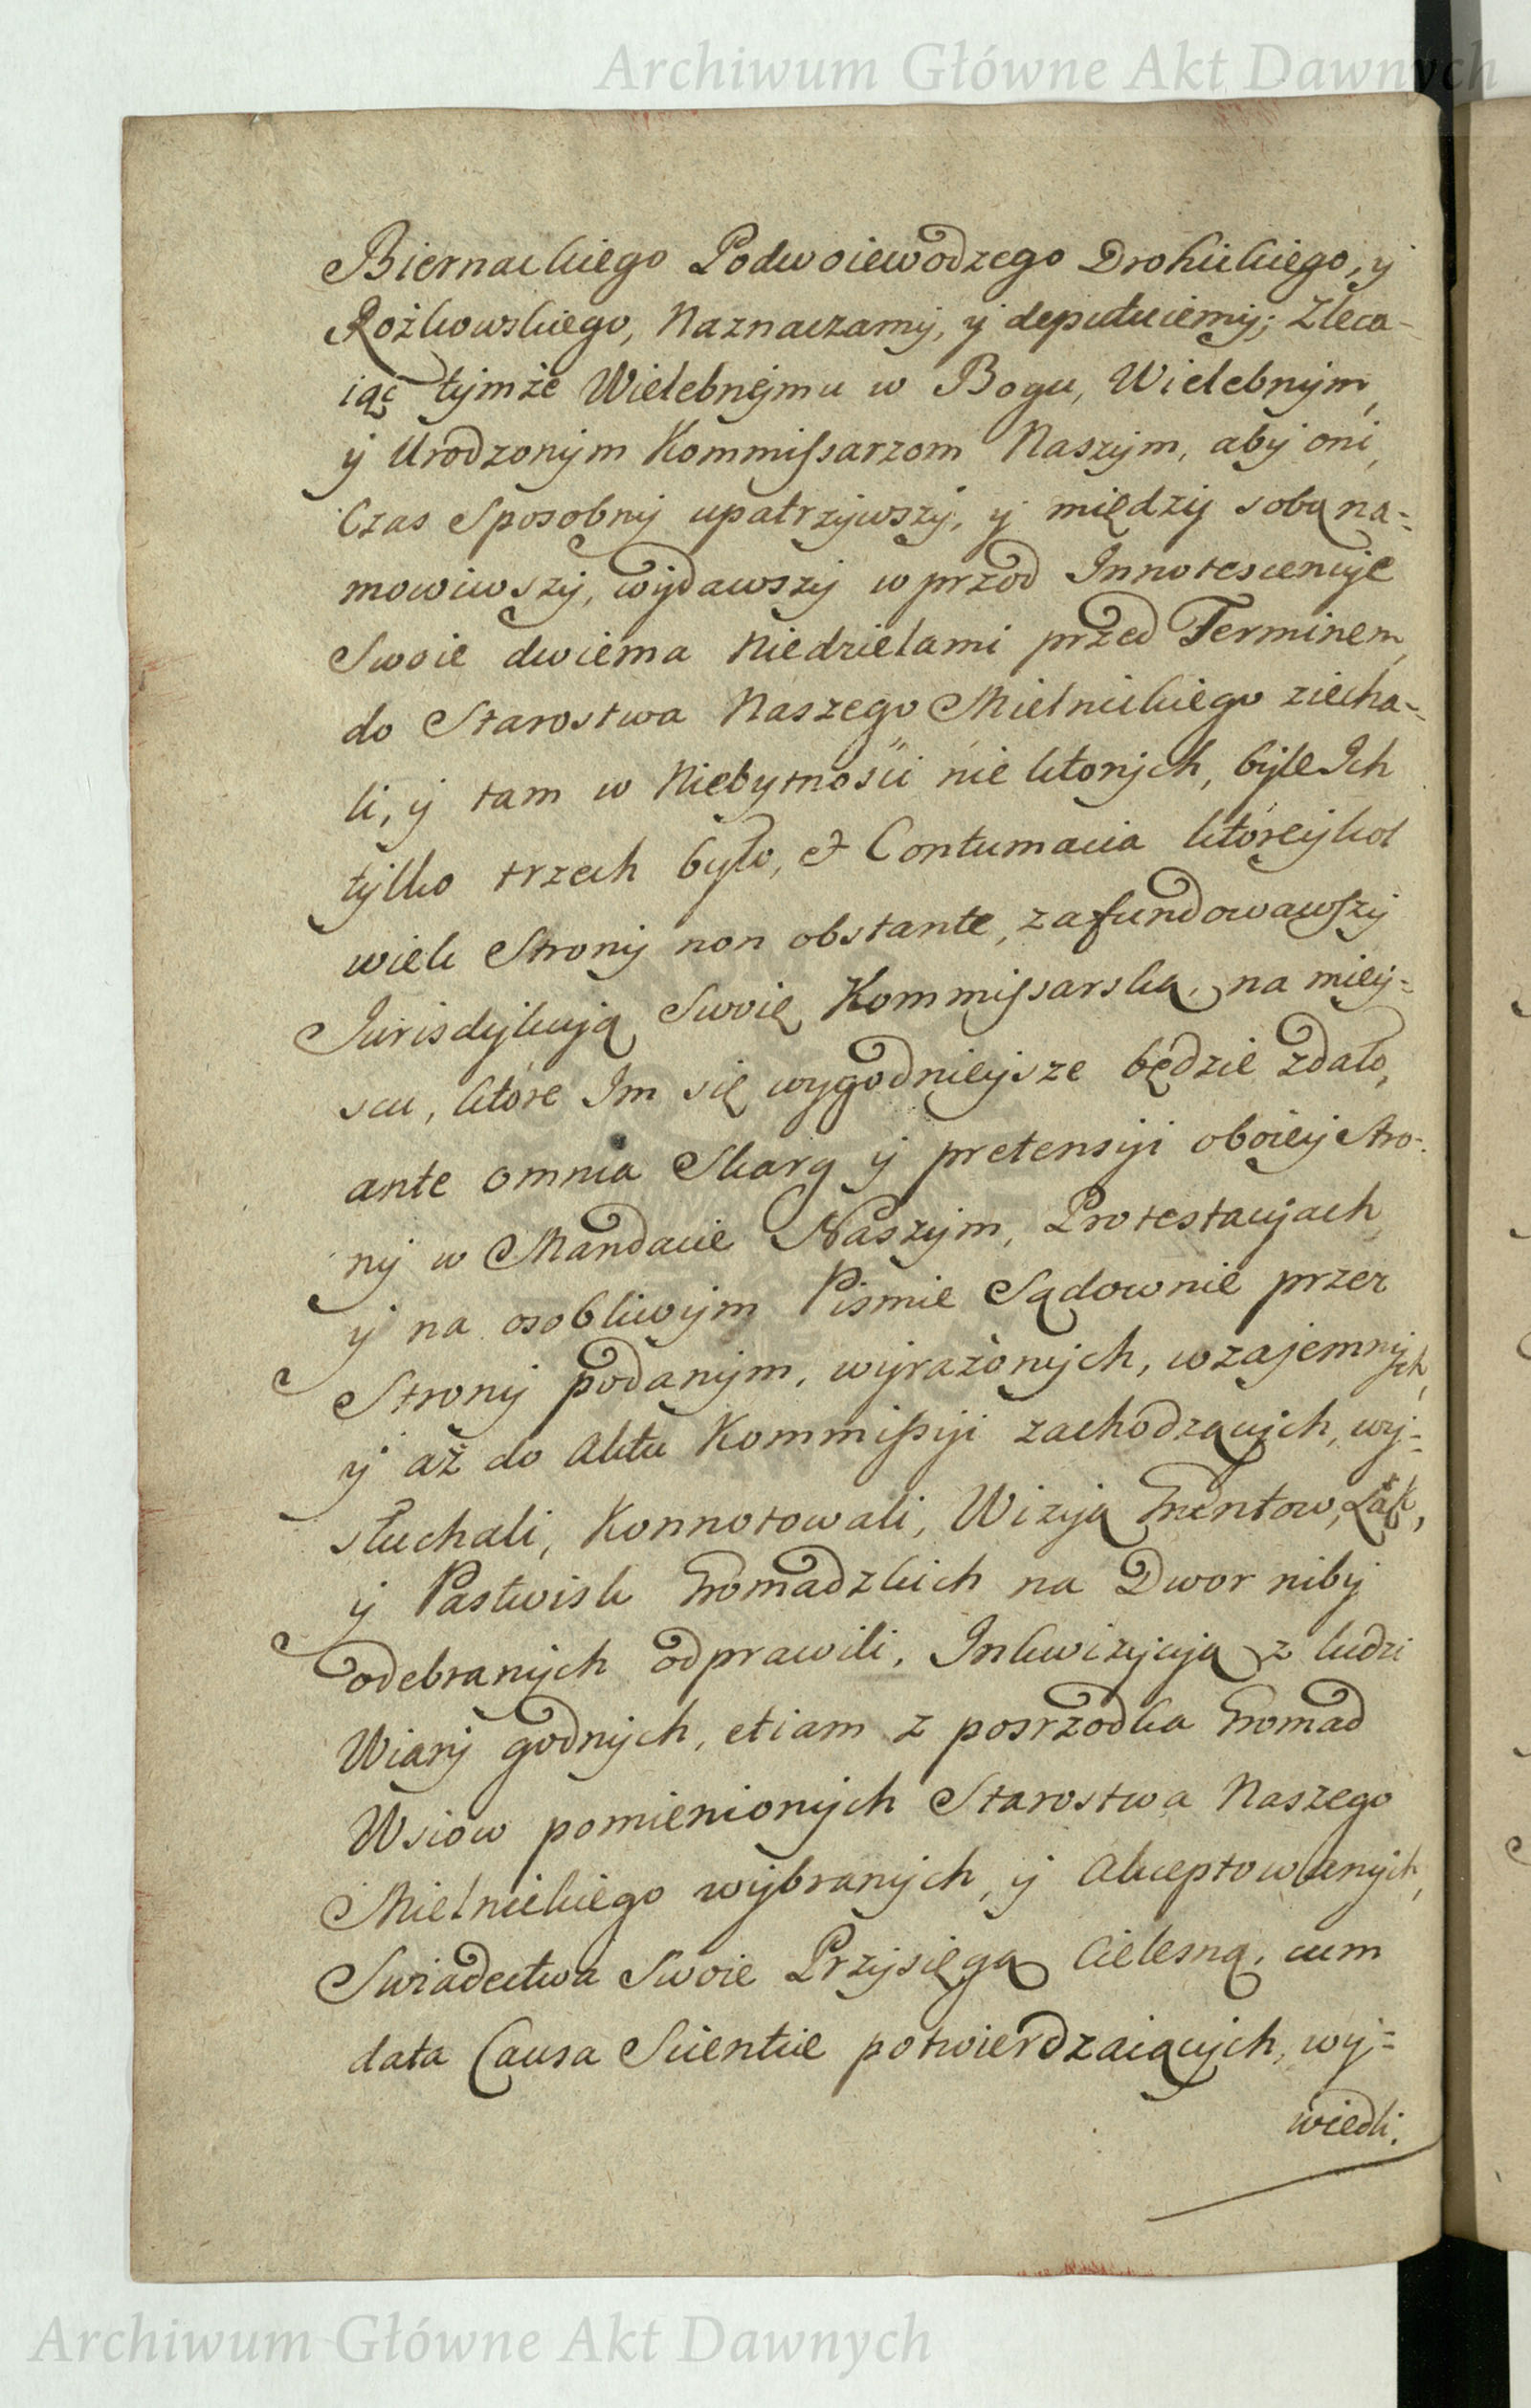 Archiwum Główne Akt Dawnych
Biernackiego Podwoiewodzego Drohickiego, y
Rożkowskiego, Naznaczamy, y deputuiemy; Zleca-
iąc tymże Wielebnemu w Bogu, Wielebnym,
y Urodzonym Kommissarzom Naszym, aby oni,
Czas Sposobny upatrzywszy, y między sobą na=
mowiwszy, wydawszy wprzod Innotescencye
Swoie dwiema Niedzielami przed Terminem,
do Starostwa Naszego Mielnickiego ziecha=
li, y tam w Niebytności nie ktorych, byle Ich
tylko trzech było, et Contumacia ktoreykol
wiek Strony non obstante, zafundowawszy
Jurisdykcyą Swoię Kommissarską, na miey=
scu, ktore Im się wygodnieysze będzie zdało,
ante omnia Skarg y pretensyi oboiey stro=
ny w Mandacie Naszym, Protestacyach
y na osobliwym Pismie Sądownie przez
Strony podanym, wyrażonych, wzajemnych,
y aż do Aktu Kommissyi zachodzących, wy=
słuchali, Konnotowali, Wizyą Gruntow, Łąk,
y Pastwisk Gromadzkich na Dwor niby
odebranych odprawili, Inkwizycyą z ludzi
Wiary godnych, etiam z posrzodka Gromad
Wsiow pomienionych Starostwa Naszego
Mielnickiego wybranych, y Akceptowanych,
Swiadectwa Swoie Przysięgą Cielesną, cum
data Causa Scientiae potwierdzaiących, wy=
wiedli.
Archiwum Główne Akt Dawnych